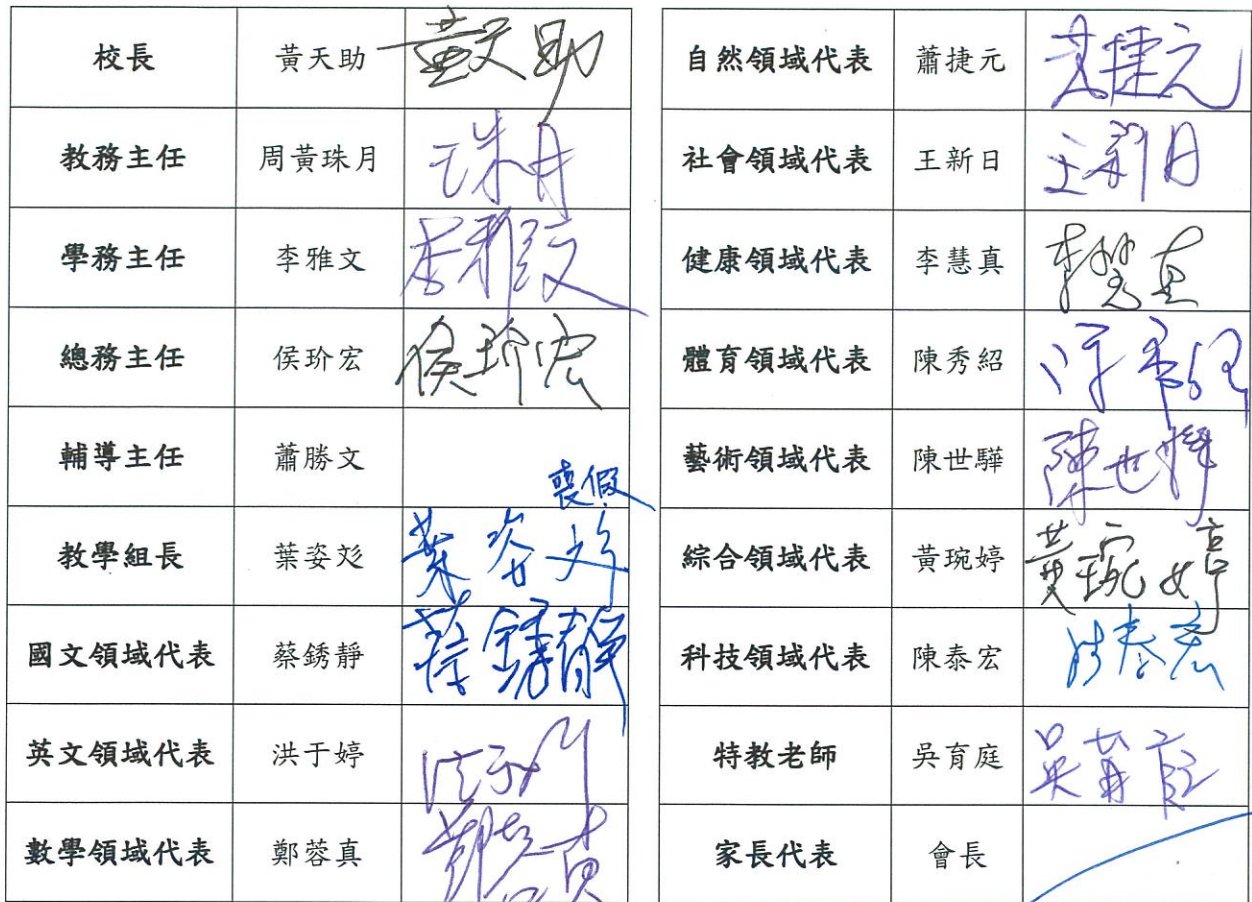 校長 黃天助 黃天助
教務主任 周黃珠月 珠月
學務主任 李雅文 李雅文
總務主任 侯玠宏 侯玠宏
輔導主任 蕭勝文 喪假
教學組長 葉姿彣 葉姿彣
國文領域代表 蔡銹靜 蔡銹靜
英文領域代表 洪于婷 洪于婷
數學領域代表 鄭蓉真 鄭蓉真
自然領域代表 蕭捷元 捷元
社會領域代表 王新日 王新日
健康領域代表 李慧真 李慧真
體育領域代表 陳秀紹 陳秀紹
藝術領域代表 陳世驊 陳世驊
綜合領域代表 黃琬婷 黃琬婷
科技領域代表 陳泰宏 陳泰宏
特教老師 吳育庭 吳育庭
家長代表 會長